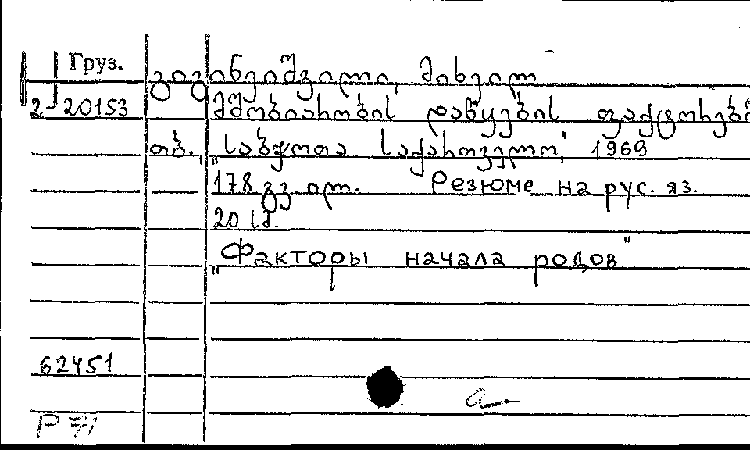 Груз. გიგინეიშვილი, მიხეილ
2-20153 მშობიარობის დაწყების ფაქტორები
თბ., "საბჭოთა საქართველო", 1969
178 გვ. ილ. Резюме на рус. яз.
20 სმ.
"Факторы начала родов"
62451